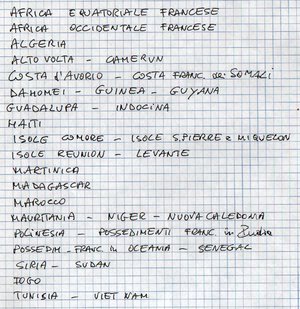 AFRICA EQUATORIALE FRANCESE
AFRICA OCCIDENTALE FRANCESE
ALGERIA
ALTO VOLTA - CAMERUN
COSTA d'AVORIO - COSTA FRANC. dei SOMALI
DAHOMEI - GUINEA - GUYANA
GUADALUPA - INDOCINA
HAITI
ISOLE COMORE - ISOLE S.PIERRE e MIQUELON
ISOLE REUNION - LEVANTE
MARTINICA
MADAGASCAR
MAROCCO
MAURITANIA - NIGER - NUOVA CALEDONIA
POLINESIA - POSSEDIMENTI FRANC. in India
POSSEDIM. FRANC. in OCEANIA - SENEGAL
SIRIA - SUDAN
TOGO
TUNISIA - VIET NAM